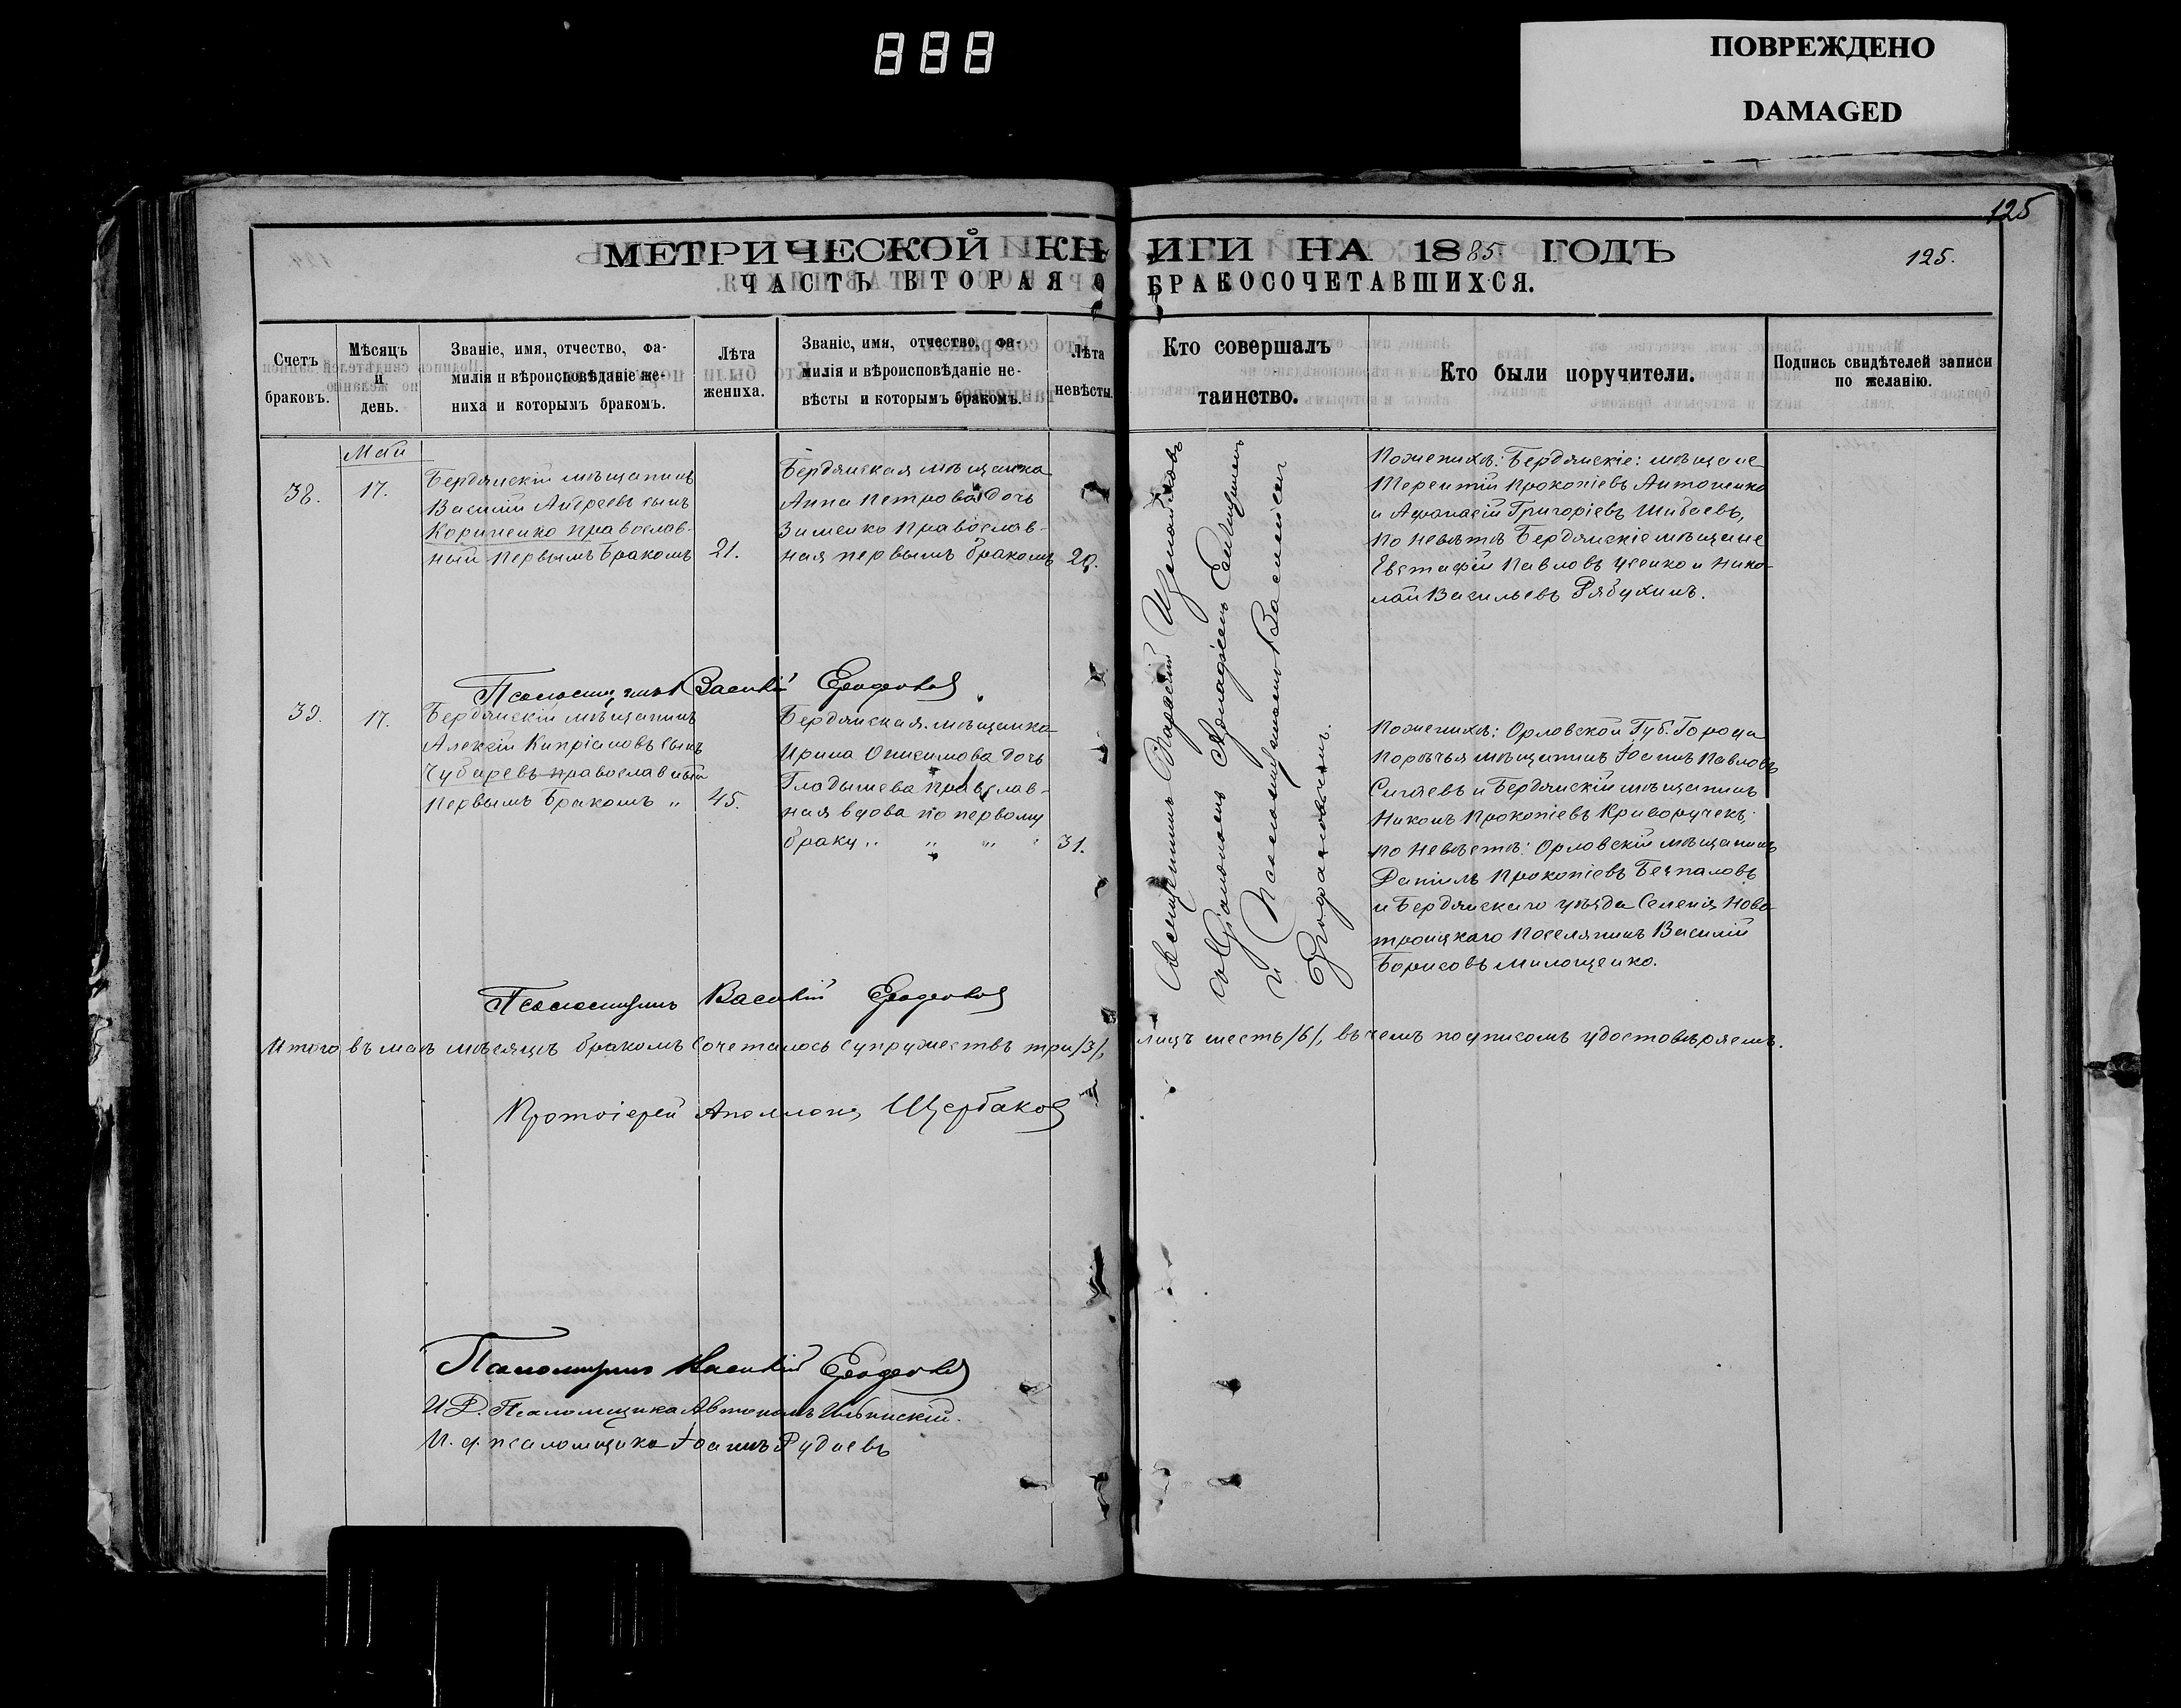 888
ПОВРЕЖДЕНО
DAMAGED
125
МЕТРИЧЕСКОЙ КНИГИ НА 1885 ГОДЪ
125.
ЧАСТЬ ВТОРАЯ О БРАКОСОЧЕТАВШИХСЯ.
Счетъ браковъ.
Мѣсяцъ и день.
Званіе, имя, отчество, фа-
милія и вѣроисповѣданіе же-
ниха и которымъ бракомъ.
Лѣта жениха.
Званіе, имя, отчество, фа-
милія и вѣроисповѣданіе не-
вѣсты и которымъ бракомъ.
Лѣта невѣсты.
Кто совершалъ
таинство.
Кто были поручители.
Подпись свидѣтелей записи
по желанію.
Май
38.
17.
Бердянскій мѣщанинъ
Василій Андреевъ сынъ
Корниенко православ-
ный первымъ бракомъ
21.
Бердянская мѣщанка
Анна Петрова дочь
Зименко православ-
ная первымъ бракомъ
20.
Священникъ
и Псаломщикомъ Василіемъ
По женихѣ: Бердянскіе: мѣщане
Терентій Прокопіевъ Антоненко
и Афанасій Григоріевъ Шибаевъ,
по невѣстѣ Бердянскіе мѣщане
Евстафій Павловъ Усенко и Нико-
лай Васильевъ Рябухинъ.
Псаломщикъ Василій
39.
17.
Бердянскій мѣщанинъ
Алексѣй Кипріановъ сынъ
Чубаревъ православный
первымъ бракомъ "
45.
Бердянская мѣщанка
Ирина Онисимова дочь
Гладышева православ-
ная вдова по первому
браку " " " "
31.
По женихѣ: Орловской Губ. Города
мѣщанинъ Іоаннъ Павловъ
Сигаевъ и Бердянскій мѣщанинъ
Никонъ Прокопіевъ Криворучекъ.
по невѣстѣ: Орловскій мѣщанинъ
Даніилъ Прокопіевъ Безпаловъ
и Бердянскаго уѣзда Селенія Ново-
троицкаго поселянинъ Василій
Борисовъ Милощенко.
Псаломщикъ Василій
Итого въ маѣ мѣсяцѣ бракомъ сочеталось супружествъ три /3/, лицъ шесть /6/, въ чемъ подписомъ удостовѣряемъ.
Протоіерей Аполлонъ Щербаковъ
Псаломщикъ Василій
И. Д. Псаломщика Автономъ
И. д. псаломщика Іоаннъ Рудаевъ